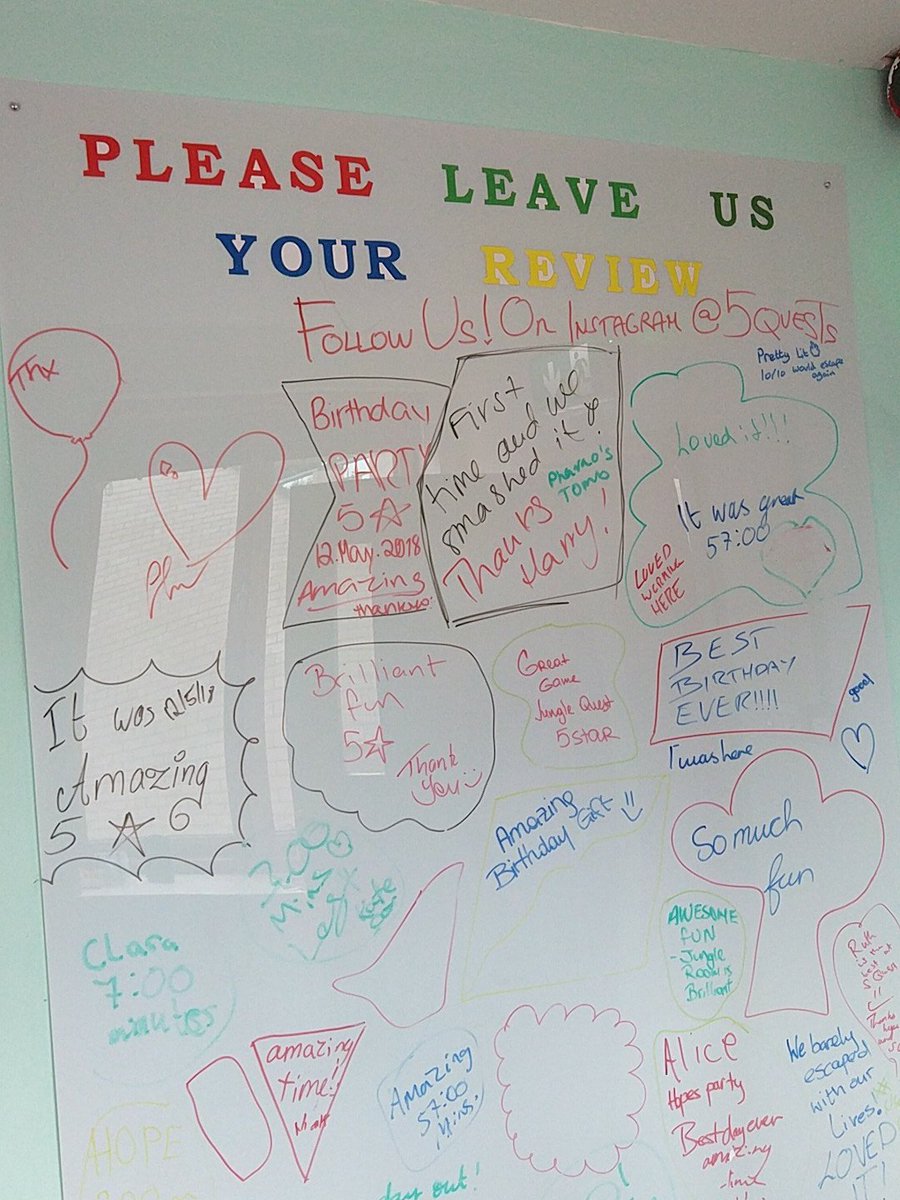 PLEASE LEAVE US
YOUR REVIEW
FOLLOW US! ON INSTAGRAM @5QUESTS
Thx
Pretty Lit
10/10 would escape
again
Birthday
PARTY
5☆
12.May.2018
Amazing
thankyou
First
time and we
smashed it
Pharao's
TOMB
Thanks
Harry!
Loved it!!!
It was great
57:00
LOVED
WORKING
HERE
It was 12/5/18
Amazing
5 ☆ 6
Brilliant
fun
5☆
Thank
you
Great
Game
Jungle Quest
5 STAR
BEST
BIRTHDAY
EVER!!!!
good
I was here
Amazing
Birthday Gift !!
So much
fun
Clara
7:00
minutes
AWESOME
FUN
- Jungle
Room is
Brilliant
Ruth
is the
best at
5 Quests
!!
Thanks
amazing
time!
Amazing
57:00
Mins.
Alice
Hopes party
Best day ever
amazing
We barely
escaped
with our
Lives!
LOVED
IT!
HOPE
day out!